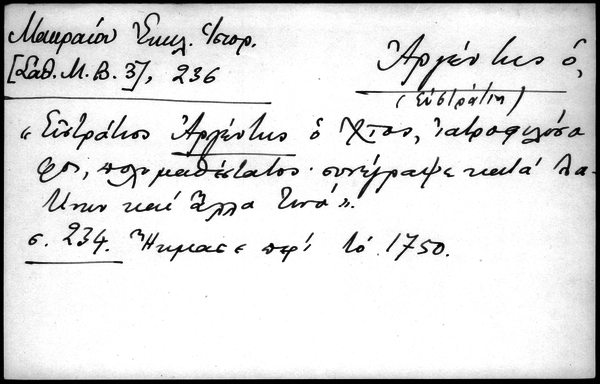 Μακραίου Ἐκκλ. Ἱστορ.
[Σαθ. Μ. Β. 3], 236
Ἀργέντης ὁ,
(Εὐστράτιος)
«Εὐστράτιος Ἀργέντης ὁ Χῖος, ἰατροφιλόσο-
φος, πολυμαθέστατος· συνέγραψε κατὰ Λα-
τίνων καὶ ἄλλα τινά».
σ. 234. Ἤκμασε περὶ τὸ 1750.